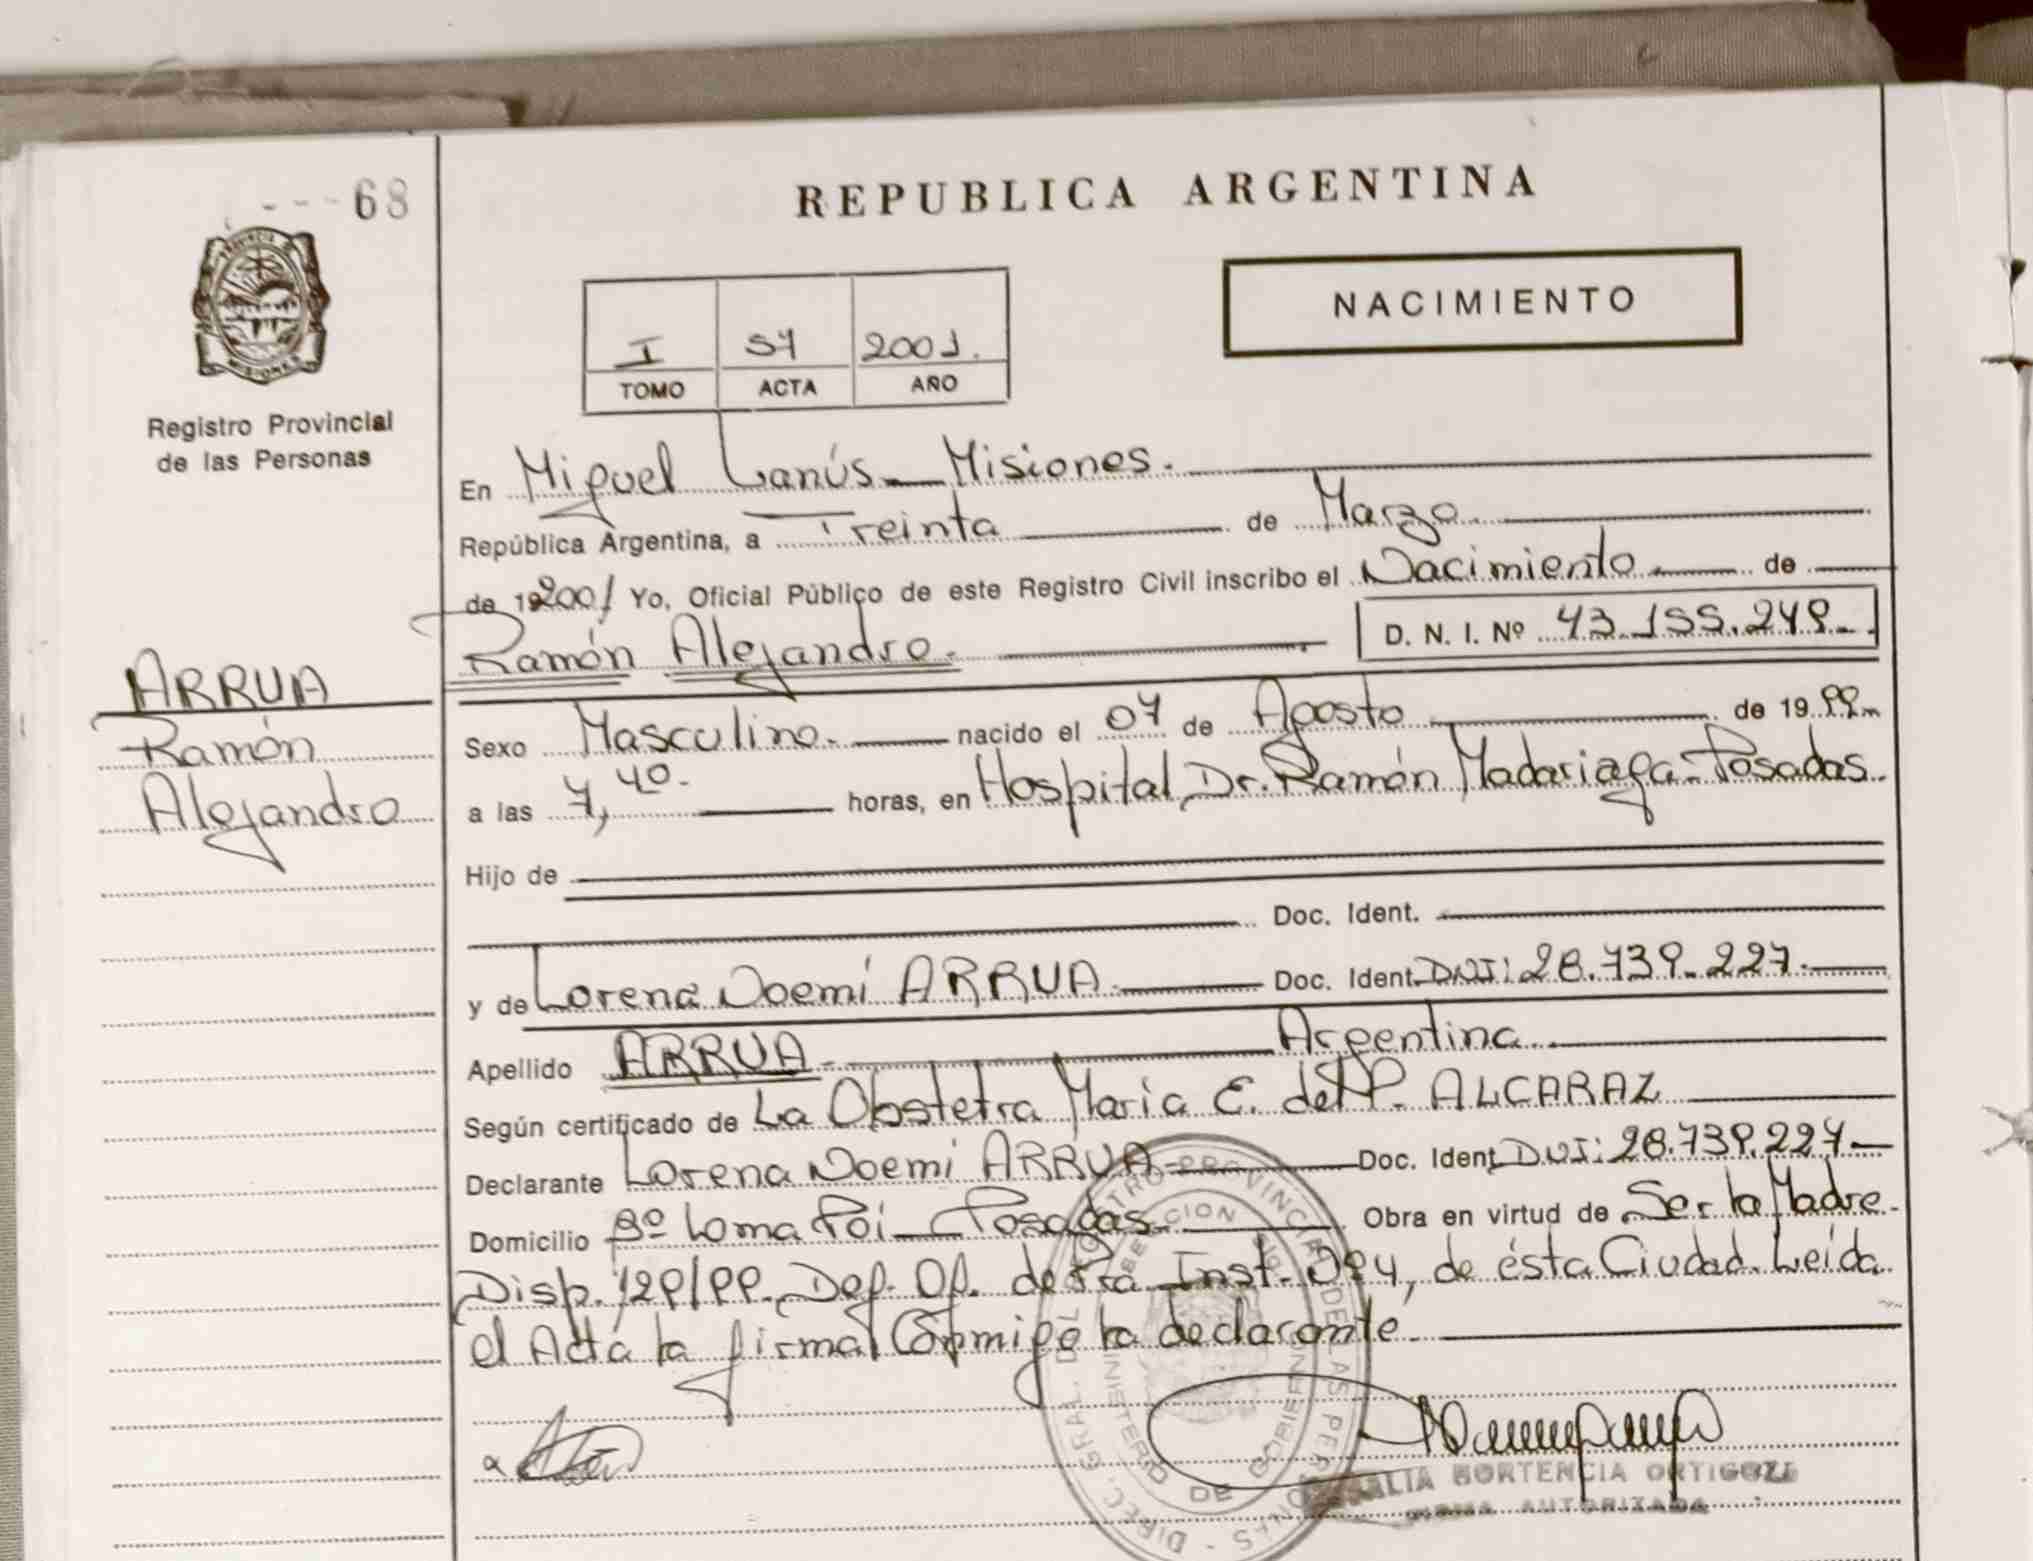 68
REPUBLICA ARGENTINA
NACIMIENTO
I 57 2001.
TOMO ACTA AÑO
Registro Provincial
de las Personas
En Miguel Lanús - Misiones.
República Argentina, a Treinta de Marzo
de 192001 Yo, Oficial Público de este Registro Civil inscribo el Nacimiento de
Ramón Alejandro. D. N. I. Nº 43.155.249
ARRUA
Ramón
Alejandro
Sexo Masculino. nacido el 07 de Agosto de 1999
a las 7,40. horas, en Hospital Dr. Ramón Madariaga - Posadas.
Hijo de
Doc. Ident.
y de Lorena Noemí ARRUA. Doc. Ident. DNI: 28.739.227.
Apellido ARRUA Argentina
Según certificado de La Obstetra María E. del P. ALCARAZ
Declarante Lorena Noemi ARRUA Doc. Ident. DNI: 28.739.227.
Domicilio Bº Loma Poi - Posadas. Obra en virtud de Ser la Madre.
Disp. 129/99. Def. Of. de 1ra Inst. , de ésta Ciudad. Leída
el Acta la firma Conmigo la declarante
DIREC. GRAL. DEL REGISTRO PROVINCIAL DE LAS PERSONAS
MINISTERIO DE GOBIERNO
HORTENCIA ORTIGOZA
FIRMA AUTORIZADA